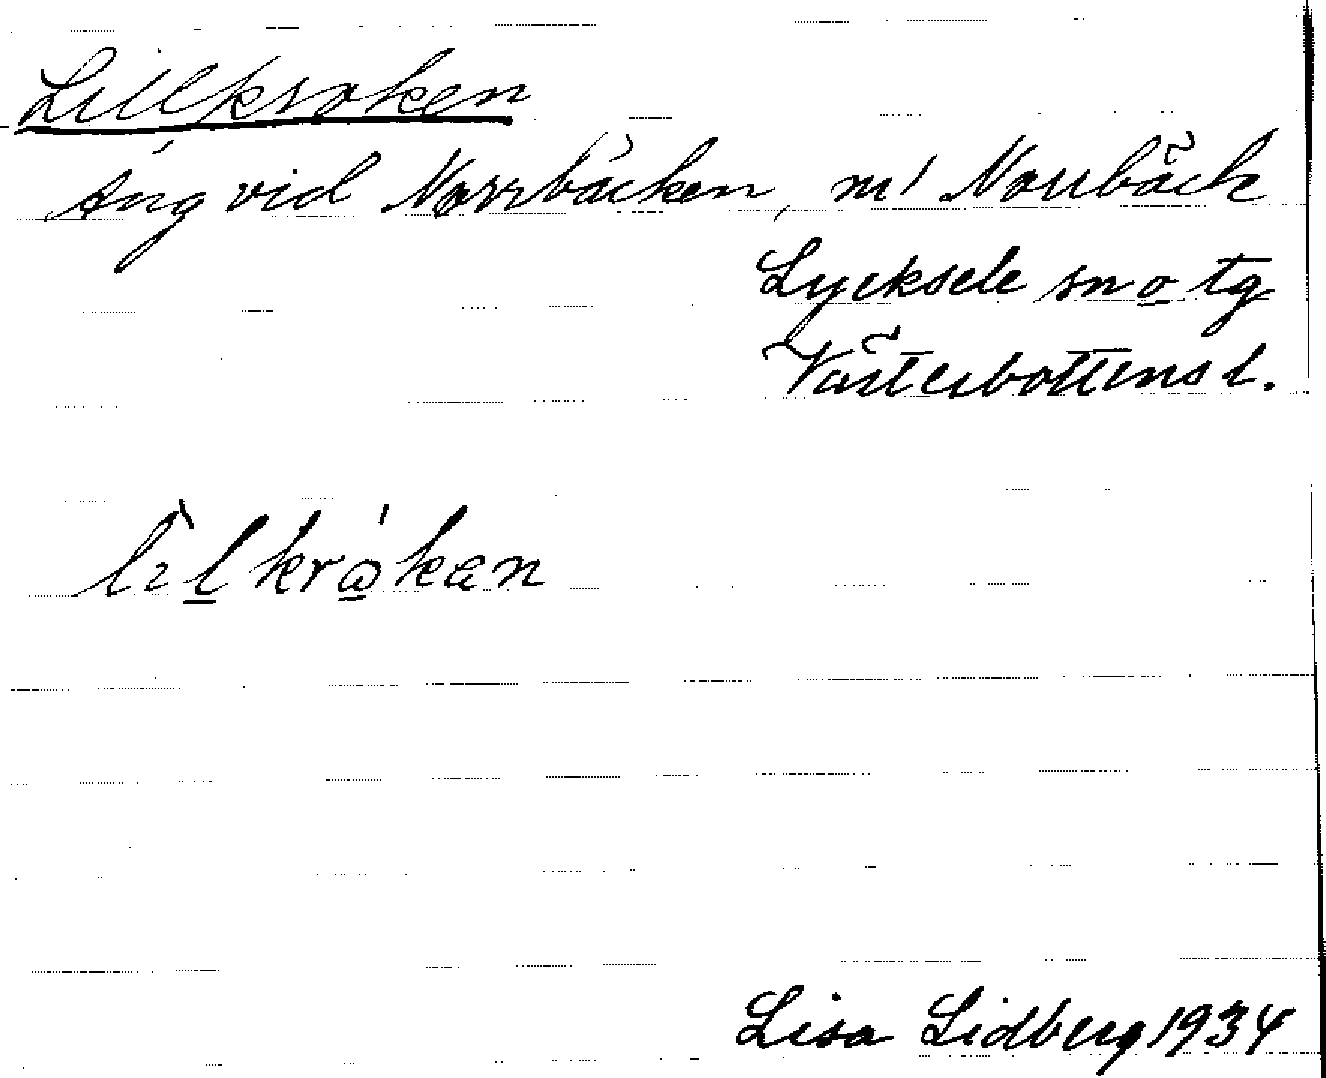 Lillkroken
Äng vid Norrbäcken, m' Norrbäck
Lycksele sn o tg
Västerbottens l.
Lisa Lidberg 1934